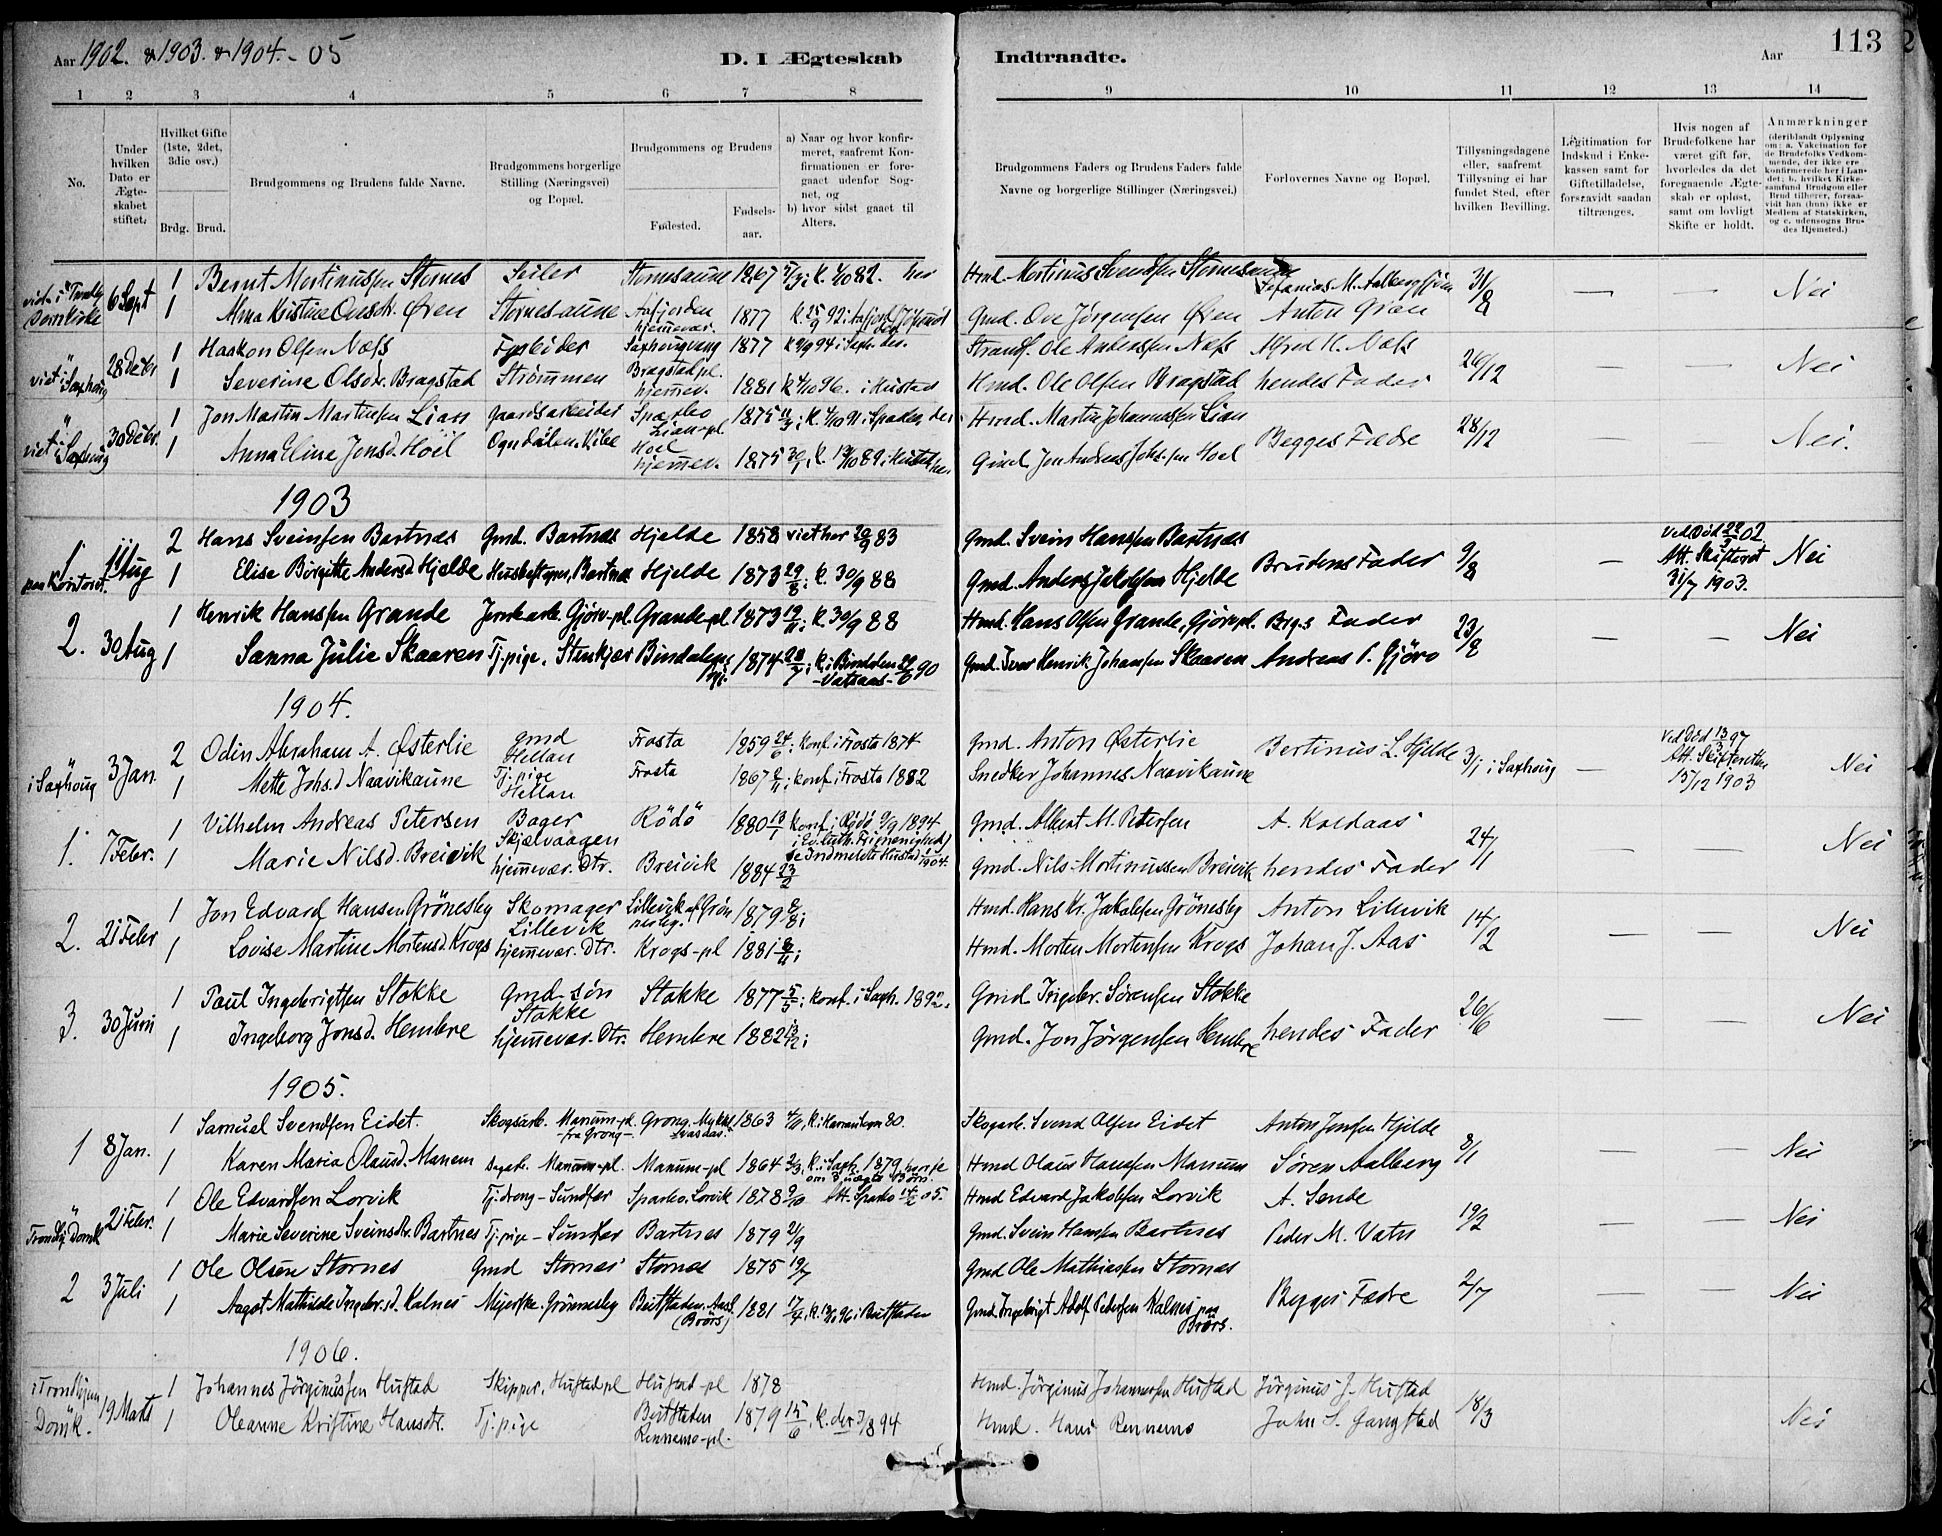 Aar 1902. & 1903. & 1904. - 05
D. I Ægteskab
Indtraadte.
Aar
113
1 2 3 4 5 6 7 8
9 10 11 12 13 14
No.
Under hvilken Dato er Ægteskabet stiftet.
Hvilket Gifte (1ste, 2det, 3die osv.)
Brdg. Brud.
Brudgommens og Brudens fulde Navne.
Brudgommens borgerlige Stilling (Næringsvei) og Bopæl.
Brudgommens og Brudens
Fødested.
Fødselsaar.
a) Naar og hvor konfirmeret, saafremt Konfirmationen er foregaaet udenfor Sognet, og
b) hvor sidst gaaet til Alters.
Brudgommens Faders og Brudens Faders fulde Navne og borgerlige Stillinger (Næringsvei.)
Forlovernes Navne og Bopæl.
Tillysningsdagene eller, saafremt Tillysning ei har fundet Sted, efter hvilken Bevilling.
Legitimation for Indskud i Enkekassen samt for Giftetilladelse, forsaavidt saadan tiltrænges.
Hvis nogen af Brudefolkene har været gift før, hvorledes da det foregaaende Ægteskab er opløst, samt om lovligt Skifte er holdt.
Anmærkninger (deriblandt Oplysning om: a. Vakcination for de Brudefolks Vedkommende, der ikke ere konfirmerede her i Landet; b. hvilket Kirkesamfund Brudgom eller Brud tilhører, forsaavidt han (hun) ikke er Medlem af Statskirken, og c. udensogns Brudes Hjemsted.)
6 Sept 1 Bernt Martinussen Stornes Seiler Stornesaune 1867 her Hmd. Martinus Svendsen Stornesaune 31/8 — — Nei
Domkirke 1 Anna Kristine Ovesdr. Øren Stornesaune Aafjorden hjemmevær. 1877 k. 25/9 92 i Aafjord Gmd. Ove Jørgensen Øren Anton Gran
viet i Saxhoug 28 Decbr 1 Haakon Olsen Næss Saxhoug 1877 Ole Andersen Næss Alfred H. Næss 26/12 — — Nei
1 Severine Olsdr. Bragstad Strømmen Bragstad pl. hjemmev. 1881 k 4/10 96. i Hustad Hmd. Ole Olsen Bragstad hendes Fader
viet i Saxhoug 30 Decbr. 1 Jon Martin Martinsen Lian Gaardsarbeider Sparbo Lian-pl 1875 Hmd. Martin Johannessen Lian Begges Fædre 28/12 — — Nei.
1 Anna Eline Jonsd. Hoel Ogndalen Hoel hjemmev. 1875 Gmd. Jon Andreas Johs.sen Hoel
1903
1 paa Kontoret. 11 Aug 2 Hans Sveinsen Bartnæs Gmd. Bartnæs Hjelde 1858 viet her 29/9 83 Gmd. Svein Hanssen Bartnæs Brudens Fader 9/8 — Ved Død 02 Att. Skifteret 31/7 1903. Nei
1 Elise Birgitte Andersd Hjelde Husbestyrer, Bartnæs Hjelde 1873 29/8; k. 30/9 88 Gmd. Anders Jakobsen Hjelde
2. 30 Aug 1 Henrik Hanssen Grande Gjørv-pl. Grande-pl. 1873 19/11; k. 30/9 88 Hmd. Hans Olsen Grande, Gjørvpl. Brgs Fader 23/8 — — Nei
1 Sanna Julie Skaaren Tj.pige, Stenkjær Bindalen 1874 20/7; k. i Bindalen 90 Gmd. Iver Henrik Johansen Skaaren Andreas P. Gjørv
1904.
i Saxhoug 3 Jan. 2 Odin Abraham A. Østerlie gmd Hellan Frosta 1859 24/6; konf. i Frosta 1874 Gmd. Anton Østerlie Bertinus L. Hjelde 3/1 i Saxhoug — Ved Død 13/3 97 Att. Skifteretten 15/12 1903 Nei
1 Mette Johs.d Naavikaune Tj. pige Hellan Frosta 1867 8/11; konf. i Frosta 1882 Snedker Johannes Naavikaune
1. 7 Febr. 1 Vilhelm Andreas Petersen Bager Skjelvaagen Rödö 1880 13/1 konf. i Rödö 9/9 1894 Gmd. Albert M. Petersen A. Koldaas 24/1 — — Nei
1 Marie Nilsd. Breivik hjemmevær. Dtr. Breivik 1884 23/2 i Ev. Luth. Frimenighed Gmd. Nils Martinussen Breivik hendes Fader
2. 21 Febr 1 Jon Edvard Hansen Grönesby Skomager Lillevik Lillevik af Grönesby. 1879 8/8; Hmd. Hans Kr. Jakobsen Grönesby Anton Lillevik 14/2 — — Nei
1 Lovise Martine Mortensd. Krogs hjemmevær. Dtr. Krogs-pl 1881 8/11; Hmd. Morten Mortensen Krogs Johan J. Aas
3. 30 Juni 1 Paul Ingebrigtsen Stokke Gmd-søn Stokke Stokke 1877 5/5; konf. i Saxh. 1892. Gmd. Ingebr. Sørensen Stokke hendes Fader 26/6 — — Nei
1 Ingeborg Jonsd. Hembre hjemmevær. Dtr. Hembre 1882 13/12; Gmd. Jon Jørgensen Hembre
1905.
1 8 Jan. 1 Samuel Svendsen Eidet. Skogsarb. Manum-pl. fra Grong Grong 1863 80. Skogarb. Svend Olsen Eidet Anton Jonsen Hjelde 8/1 — — Nei
1 Karen Maria Olausd. Manum Manum-pl. Manum-pl 1864 k. i Saxh. 1879 Hmd Olaus Hanssen Manum Søren Aalberg
" Trondhj. Domk 21 Febr. 1 Ole Edvardsen Lorvik Tj.dreng - Sundfær Sparbo. Lorvik 1878 9/10 Att. Sparbo 14/2 05. Hmd Edvard Jakobsen Lorvik A. Sende 19/2 — — Nei
1 Marie Severine Sveinsdtr. Bartnes Tj.pige - Sundfær Bartnes 1879 21/9 Gmd. Svein Hanssen Bartnes Peder M. Vatn
2 3 Juli 1 Ole Olsen Stornes Gmd Stornes Stornes 1875 19/7 Gmd Ole Mathiassen Stornes Begges Fædre 2/7 — — Nei
1 Aagot Mathilde Ingebr.sd. Kalnes Meierske. Grönnesby Beitstaden. (Brørs) 1881 17/4, k. 96 i Beitstaden Gmd. Ingebrigt Adolf Pedersen Kalnes paa Brørs.
1906.
i Trondhjem Domk. 19 Marts 1 Johannes Jörginussen Hustad Skipper, Hustad pl Hustad-pl 1878 Hmd. Jörginus Johannessen Hustad Jörginus J. Hustad 18/3 Nei
1 Oleanne Kristine Hansdtr. Tj. pige Beitstaden Rennemo-pl. 1879 15/6, k. der 3/8 94 Hmd. Hans Rennemo John S. Gangstad